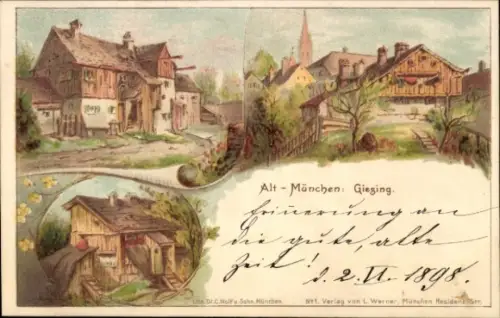 Alt - München: Giesing.
Erinnerung an
die gute, alte
Zeit!
d. 2. VI. 1898.
Lith. Dr. C. Wolf u. Sohn, München.
Verlag von L. Werner, München